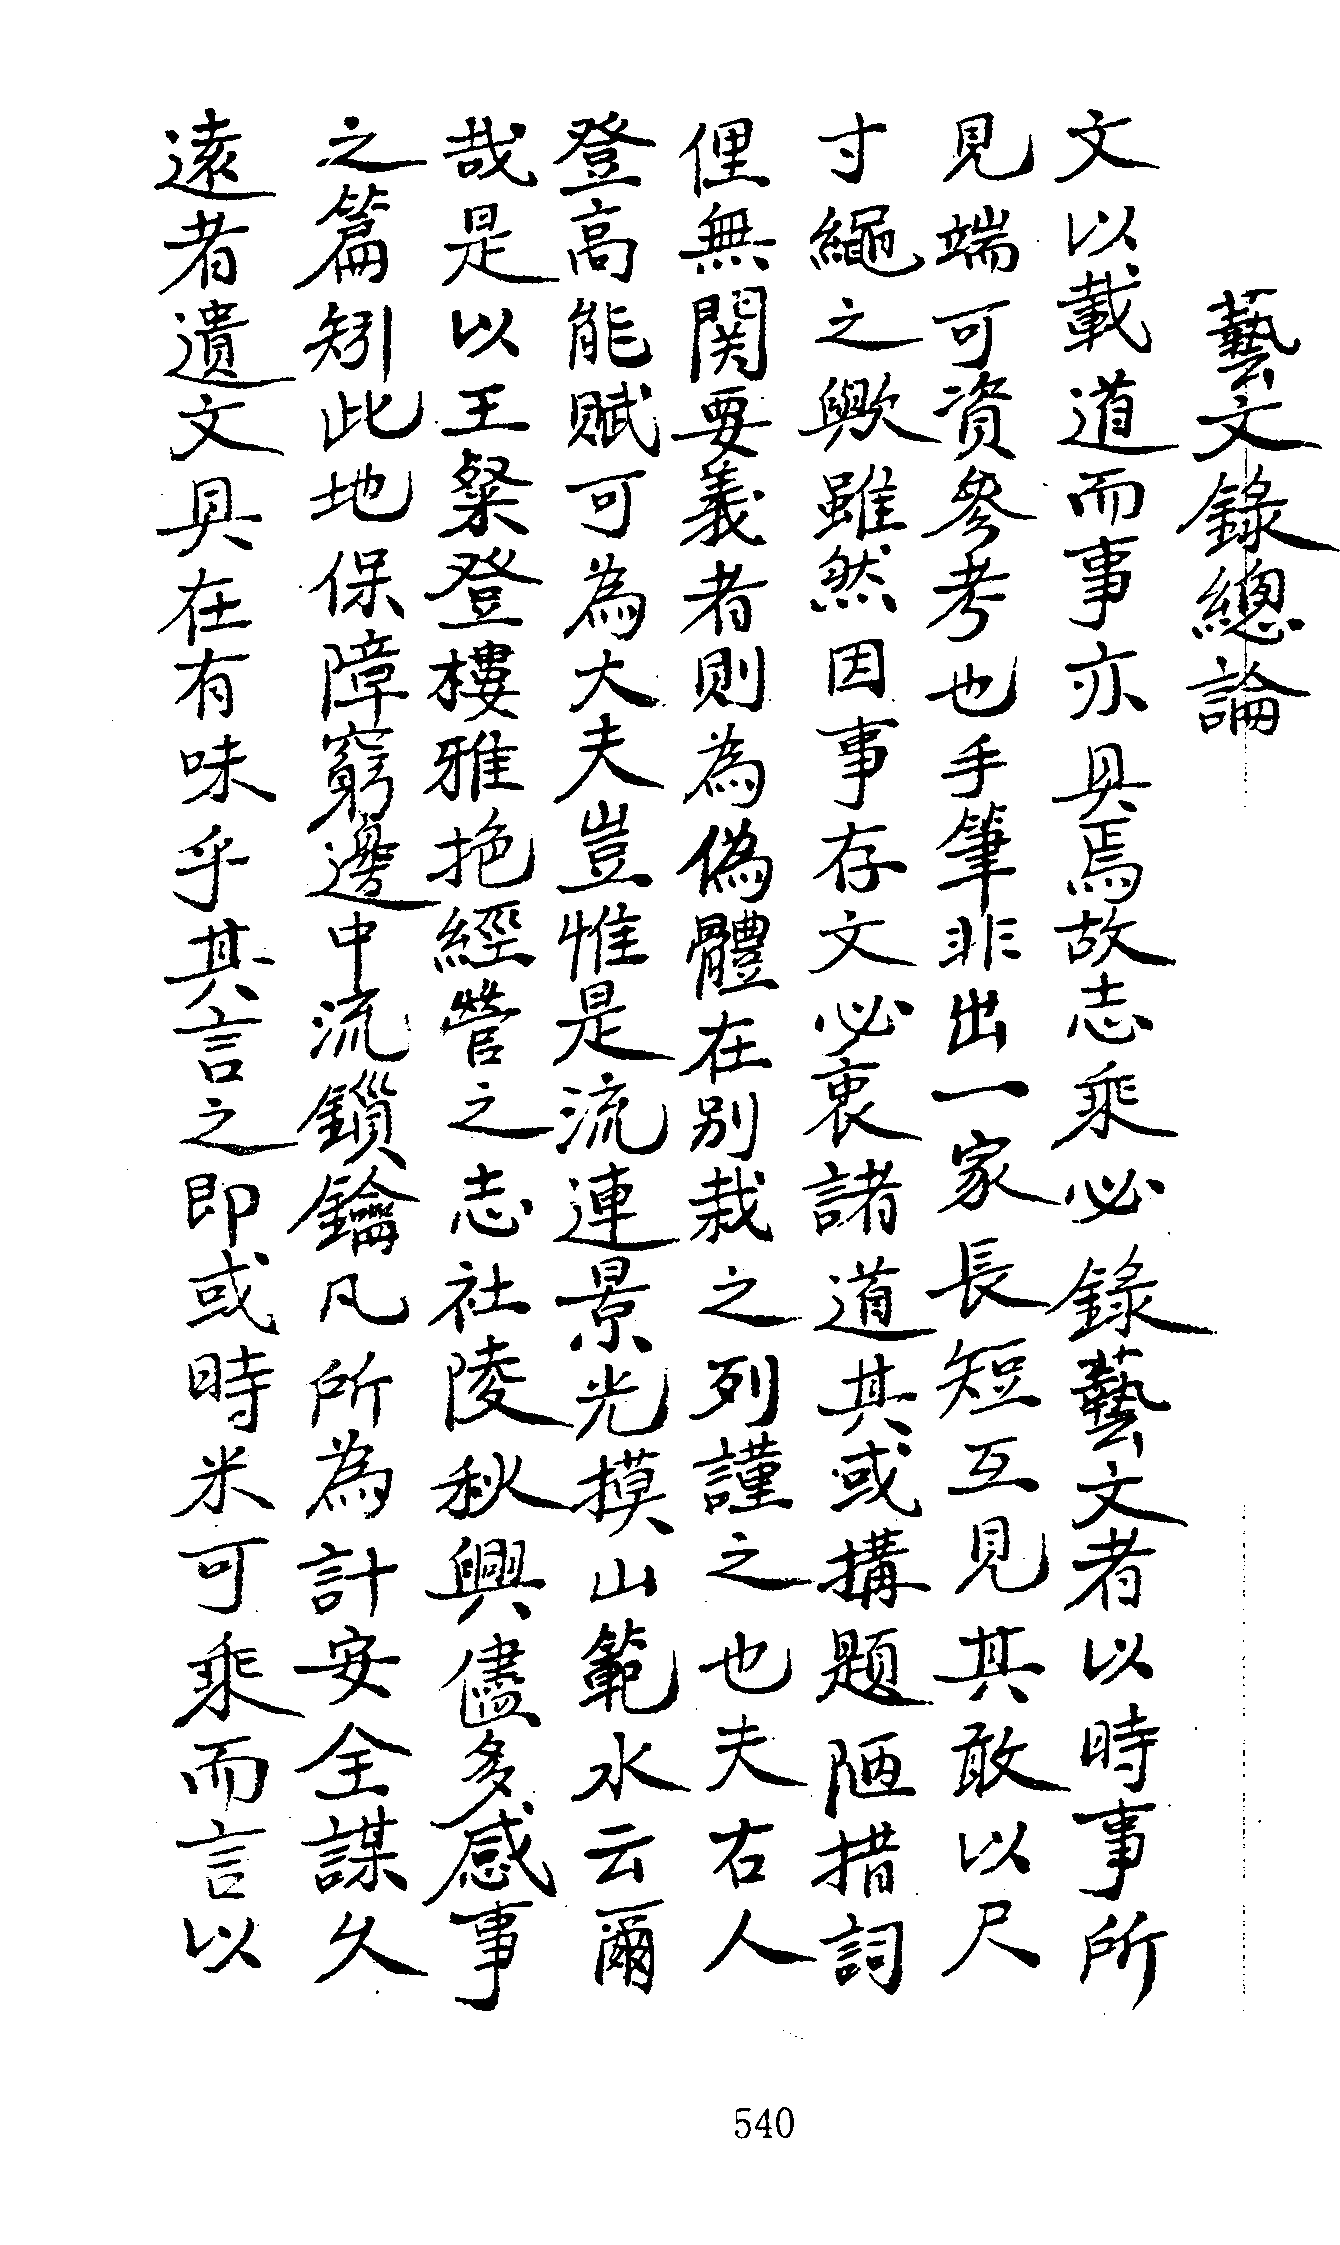 藝文錄總論
文以載道而事亦具焉故志乘必錄藝文者以時事所
見端可資參考也手筆非出一家長短互見其敢以尺
寸繩之歟雖然因事存文必衷諸道其或搆題陋措詞
俚無関要義者則為偽體在別栽之列謹之也夫右人
登高能賦可為大夫豈惟是流連景光摸山範水云爾
哉是以王粲登樓雅抱經營之志社陵秋興儘多感事
之篇矧此地保障窮邊中流鎖鑰凡所為計安全謀久
遠者遺文具在有味乎其言之即或時米可乘而言以
540